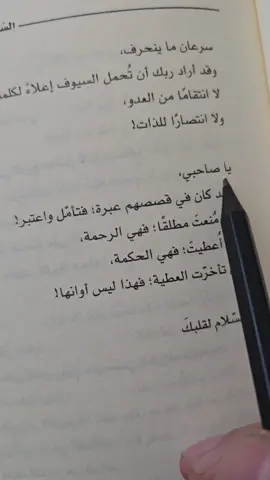 سرعان ما ينحرف،
وقد أراد ربك أن تُحمل السيوف إعلاءً لكلمة
لا انتقامًا من العدو،
ولا انتصارًا للذات!
يا صاحبي،
كان في قصصهم عبرة؛ فتأمّل واعتبر!
مُنعتَ مطلقًا؛ فهي الرحمة،
أُعطيتَ؛ فهي الحكمة،
تأخرّت العطية؛ فهذا ليس أوانها!
لقلبكَ